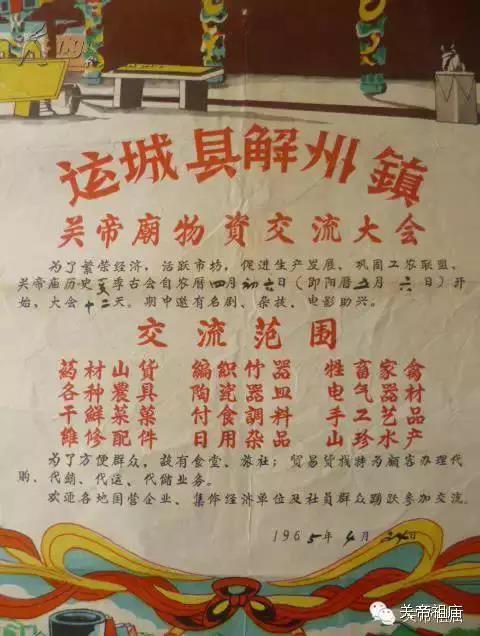 运城县解州鎮
关帝廟物資交流大会
为了繁荣经济，活跃市坊，促进生产发展，巩固工农联盟，
关帝庙历史夏季古会自农曆四月初六日（即阳曆五月六日）开
始，大会十二天。期中邀有名剧、杂技、电影助兴。
交流范围
葯材山貨 編織竹器 牲畜家禽
各种農具 陶瓷器皿 电气器材
干鮮菜菓 付食調料 手工艺品
維修配件 日用杂品 山珍水产
为了方便群众，設有食堂、旅社；貿易貨栈特为顧客办理代
购、代銷、代运、代储业务。
欢迎各地国营企业、集体经济单位及社員群众踴跃参加交流。
1965年4月24日
关帝祖庙